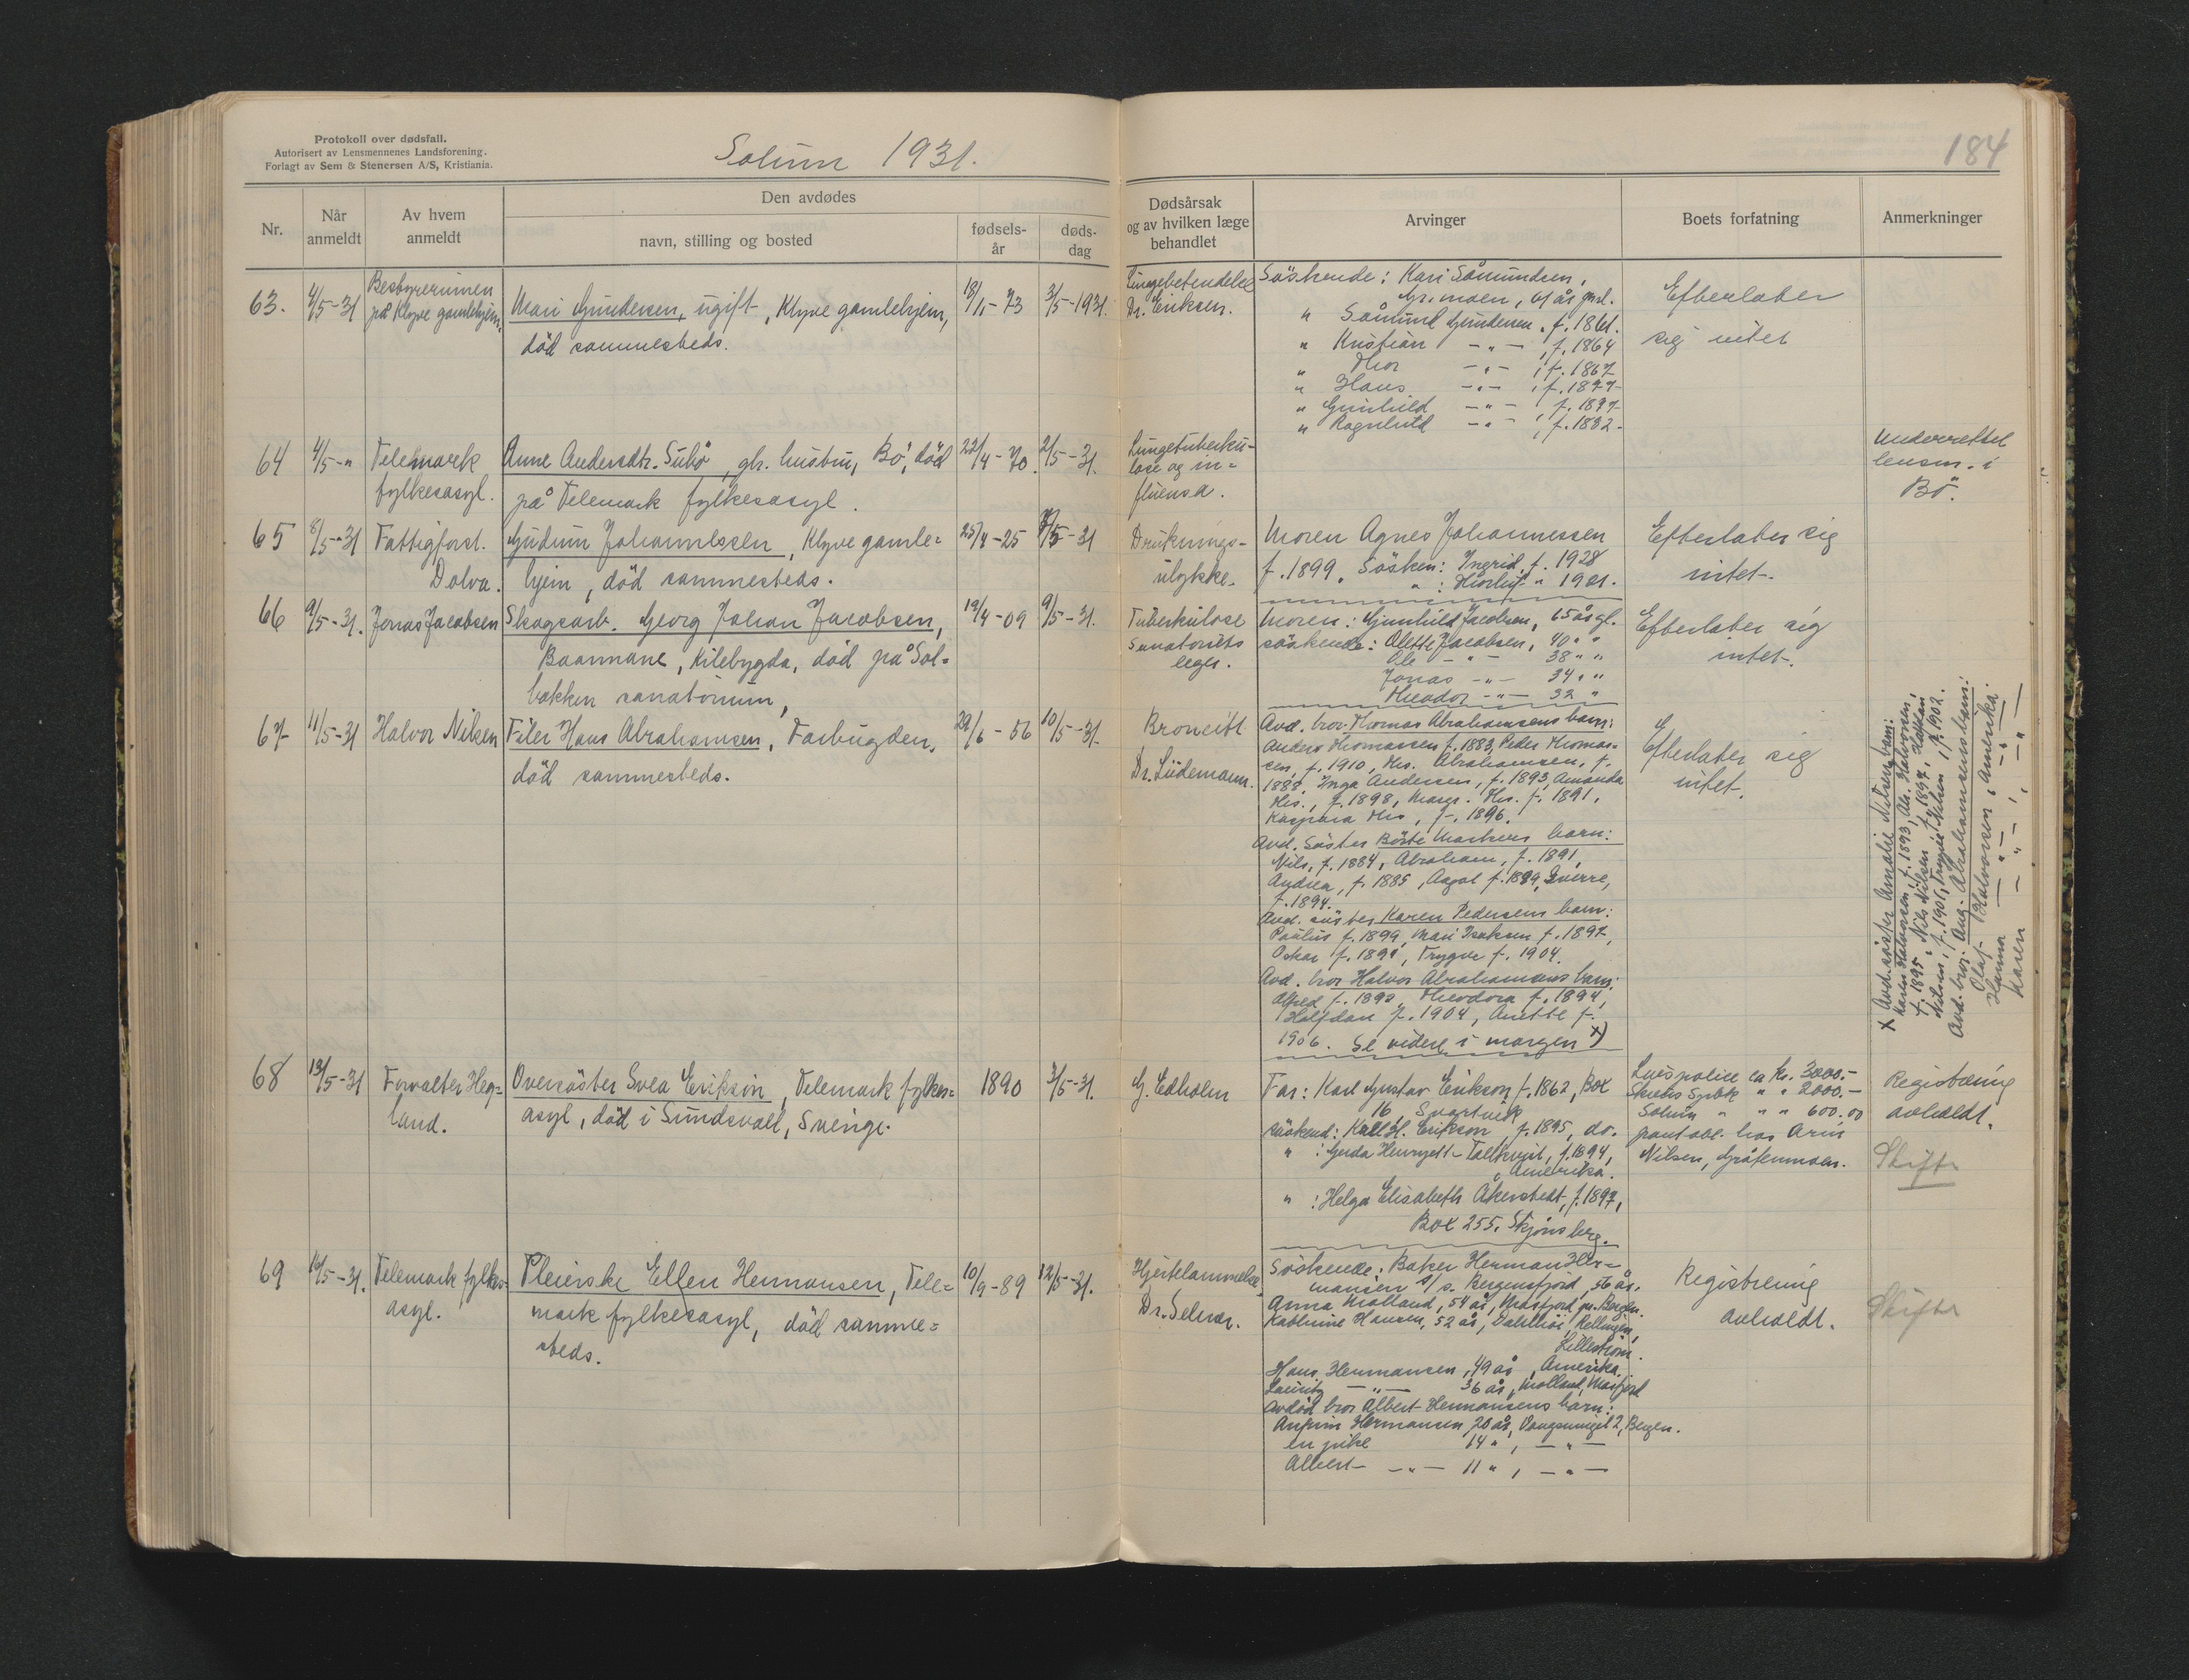 Protokoll over dødsfall.
Autorisert av Lensmennenes Landsforening.
Forlagt av Sem & Stenersen A/S, Kristiania.
Solum 1931.
184
Nr.
Når anmeldt
Av hvem anmeldt
Den avdødes
navn, stilling og bosted
fødsels-
år
døds-
dag
Dødsårsak
og av hvilken læge
behandlet
Arvinger
Boets forfatning
Anmerkninger
63.
4/5-31
Bestyrerinnen
på Klyve gamlehjem.
Mari Gundersen, ugift, Klyve gamlehjem,
död sammesteds.
18/1-73
3/5-1931.
Lungebetendelse
Dr. Eriksen.
Söskende: Kari Såmundsen,
Gr. moen, 61 år gml.
" Såmund Gundersen, f. 1861.
" Kristian -"- , f. 1864
" Thor -"- , f. 1867
" Hans -"- , f. 1877
" Gunhild -"- , f. 1877
" Ragnhild -"- , f. 1882
Efterlater
sig intet
64
4/5-"
Telemark
fylkesasyl.
Anne Andersdtr. Subö, gh. hustru, Bö, död
på Telemark fylkesasyl.
22/4-70.
2/5-31.
Lungetuberku-
lose og in=
fluensa.
Underrettet
lensm. i
Bö.
65
8/5-31
Fattigforst.
Dolva.
Gudrun Johannessen, Klyve gamle=
hjem, död sammesteds.
25/4-25
7/5-31
Druknings-
ulykke.
Moren Agnes Johannessen
f. 1899. Sösken: Ingrid, f. 1928
" : Thorleif " 1921.
Efterlater sig
intet.
66
9/5-31.
Jonas Jacobsen
Skogsarb. Georg Johan Jacobsen,
Baanmane, Kilebygda, död på Sol=
bakken sanatorium,
19/4-09
9/5-31.
Tuberkulose
Sanatoriets
leger.
Moren: Gunhild Jacobsen, 65 år gl.
söskende: Olette Jacobsen, 40 " "
Ole -"- 38 " "
Jonas -"- 34 " "
Theodor -"- 32 "
Efterlater sig
intet.
67
11/5-31
Halvor Nilsen
Filer Hans Abrahamsen, Farbugden,
död sammesteds.
29/6-56
10/5-31.
Broncitt
Dr. Lüdemann.
Avd. bror Thomas Abrahamsens barn:
Anders Thomassen f. 1883, Peder Thomas-
sen, f. 1910, Ths. Abrahamsen, f.
1888, Inga Andersen, f. 1893, Amanda
Ths., f. 1898, Margr. Ths. f. 1891,
Kaspara Ths, f. 1896.
Avd. Söster Börte Markers barn:
Nils, f. 1884, Abraham, f. 1891,
Andrea, f. 1885, Aagot f. 1899, Sverre,
f. 1894.
Avd. söster Karen Pedersens barn:
Paulus f. 1899, Mari Isaksen f. 1897,
Oskar f. 1891, Trygve f. 1904.
Avd. bror Halvor Abrahamsens barn:
Alfred f. 1892, Theodora f. 1894,
Halfdan f. 1904, Anette f.
1906. Se videre i margen x)
Efterlater sig
intet.
x Avd. söster Amalie Nilsens barn:
Karen Halvorsen, f. 1893, Als. Halvorsen,
f. 1895, Nils Nilsen f. 1897, Halfdan
Nilsen, f. 1901, Trygve Nilsen, f. 1902.
Avd. bror Aug. Abrahamsens barn:
Olaf Halvorsen, Amerika.
Hanna -"- , -"-
Karen -"- , -"-
68
13/5-31
Forvalter Heg-
land.
Oversöster Svea Erikson, Telemark fylkes=
asyl, död i Sundsvall, Sverige.
1890
3/5-31.
G. Edholm
Far: Karl Gustav Erikson f. 1862, Box
16, Svartvik
söskend: Karl H. Erikson, f. 1895, do.
" : Gerda Henryett Tallkvist, f. 1894,
Amerika.
" : Helga Elisabeth Åkerstedt, f. 1897,
Box 255, Skjönsberg.
Livspolice ca kr. 3000.-
Skiens Spbk " " 2000.-
Solum " " " 600.00
pantobl. hos Arne
Nilsen, Gråtenmoen.
Registrering
avholdt.
Skifte
69
16/5-31.
Telemark fylkes-
asyl.
Pleierske Ellen Hermansen, Tele=
mark fylkesasyl, död samme=
steds.
10/9-89
12/5-31.
Hjertelammelse
Dr. Selmer.
Söskende: Baker Herman Her=
mansen s/s. Bergensfjord, 56 år.
Anna Molland, 54 år, Masfjord pr. Bergen.
Kathrine Hansen, 52 år,
Lilleström.
Hans Hermansen, 49 år, Amerika.
Lauritz -"- 36 år, Molland, Masfjord
Avdöd bror Albert Hermansens barn:
Hermansen 20 år, 2, Bergen.
en pike 14 ", -"-
Albert -"- 11 ", -"-
Registrering
avholdt.
Skifte